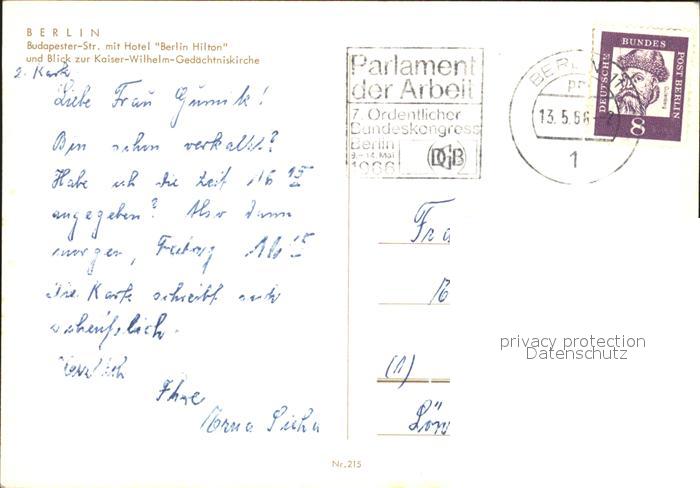 BERLIN
Budapester-Str. mit Hotel "Berlin Hilton"
und Blick zur Kaiser-Wilhelm-Gedächtniskirche
2. Karte
Liebe Frau
Bin schon verkalkt?
Habe ich die Zeit 16 15
angegeben? Also dann
morgen, Freitag 16 15
Die Karte scheibt sich
scheußlich.
Herzlich
Ihre
Erna
Parlament
der Arbeit
7. Ordentlicher
Bundeskongress
Berlin
9.-14. Mai
1966
DGB
BERLIN
13.5.66
1
DEUTSCHE BUNDESPOST BERLIN
8
Fra
(1)
privacy protection
Datenschutz
Nr. 215